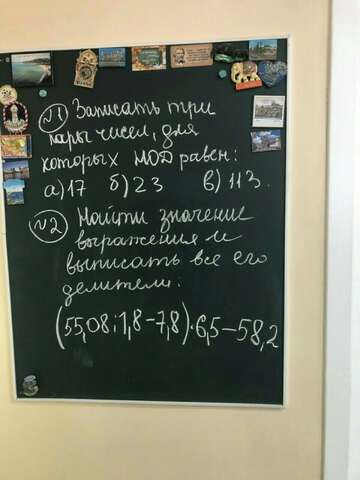 №1 Записать три
пары чисел, для
которых НОД равен:
а) 17 б) 23 в) 113.
№2 Найти значение
выражения и
выписать все его
делители:
(55,08:1,8-7,8)·6,5-58,2